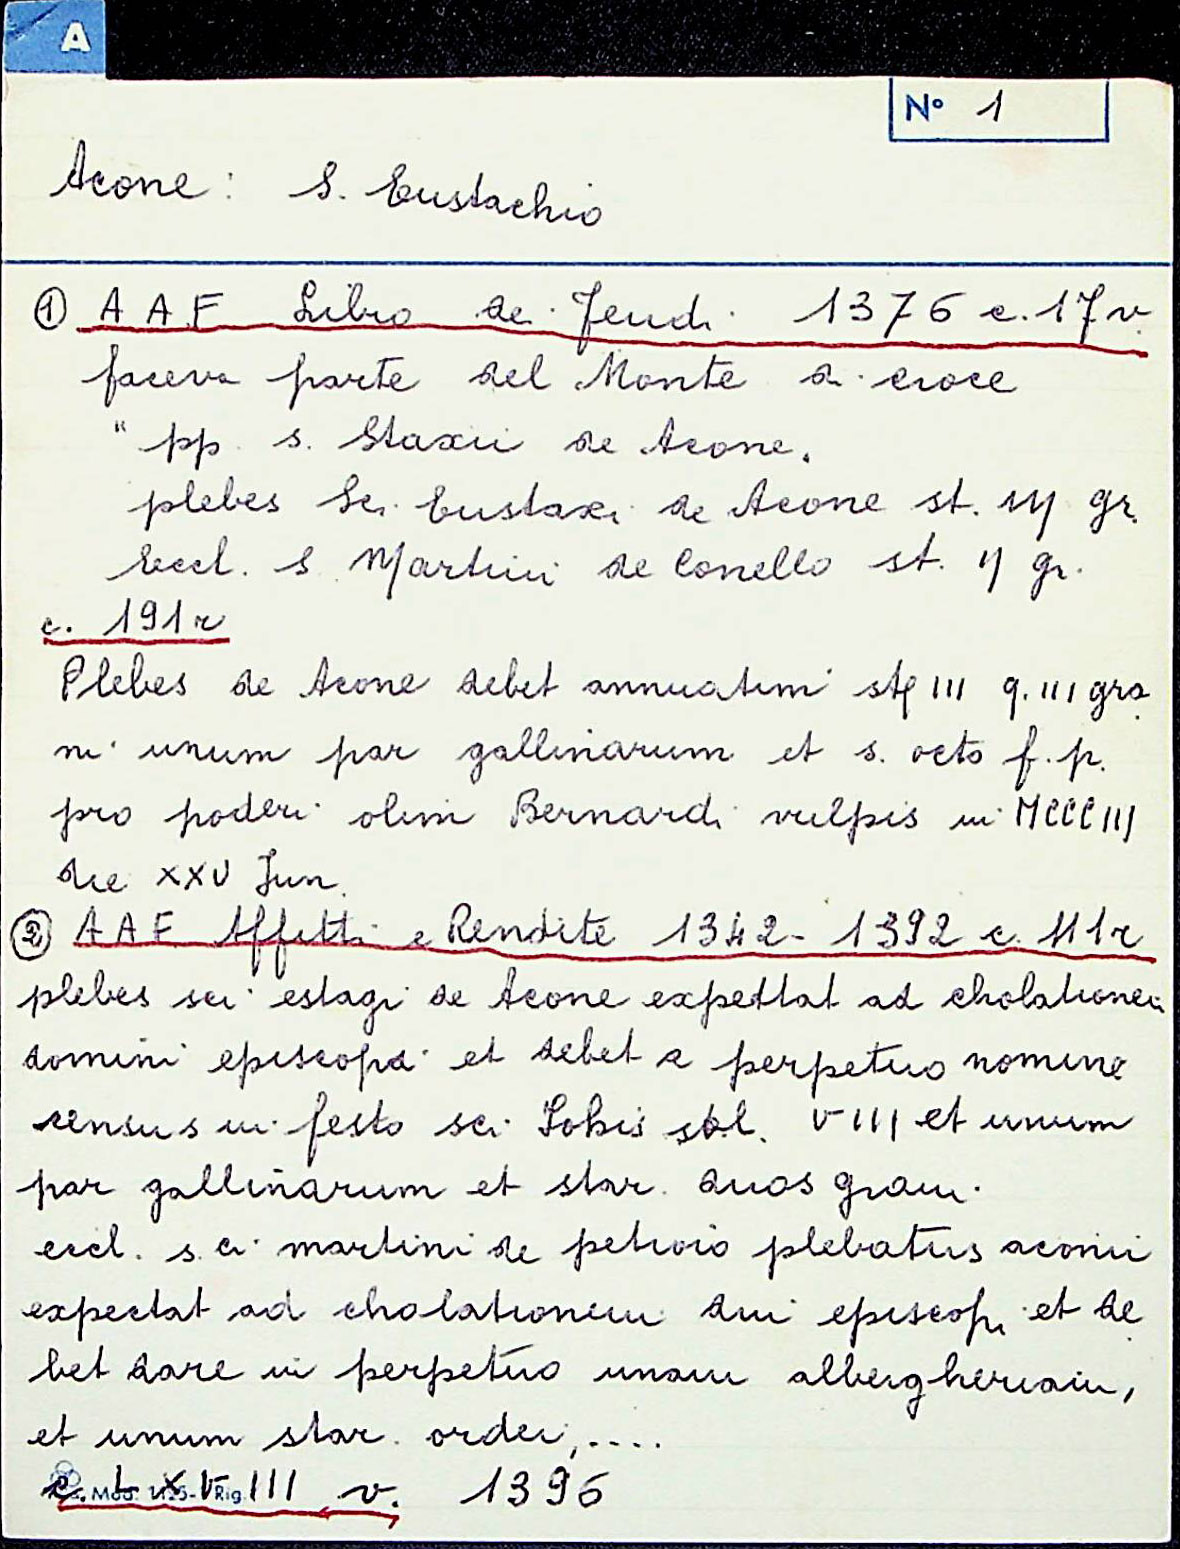 A
N° 1
Acone: S. Eustachio
① AAF Libro dei Feudi 1376 c. 17v.
faceva parte del Monte di croce
" pp. s. Staxii de Acone.
plebes Sci Eustaxi de Acone st. III gr.
Eccl. S. Martini de Conello st. II gr.
c. 191r
Plebes de Acone debet annuatim st III q. III gra
ni unum par gallinarum et s. octo f. p.
pro poderi olim Bernardi vulpis in MCCCIII
die XXV Jun.
② AAF Affitti e Rendite 1342-1392 c. 111r
plebes sci estagi de Acone expettat ad cholationem
domini episcopi et debet a perpetuo nomine
census in festo sci Iohis sol. VIII et unum
par gallinarum et star. duos grani.
eccl. sci martini de petroio plebatus aconii
expectat ad cholationem dni episcopi et de
bet dare in perpetuo unam albergheriam,
et unum star. ordei,....
c. LXVIII v. 1396
Mod. Rig.